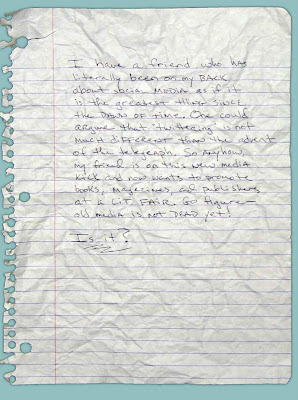 I have a friend who has
literally been on my BACK
about social media as if it
is the greatest thing since
the DAWN of time. One could
argue that "twittering" is not
much different than the advent
of the telegraph. So anyhow,
my friend is on this new media
kick and now wants to promote
books, magazines, and publishers
at a LIT FAIR. Go figure—
old media is not DEAD yet!
Is it?